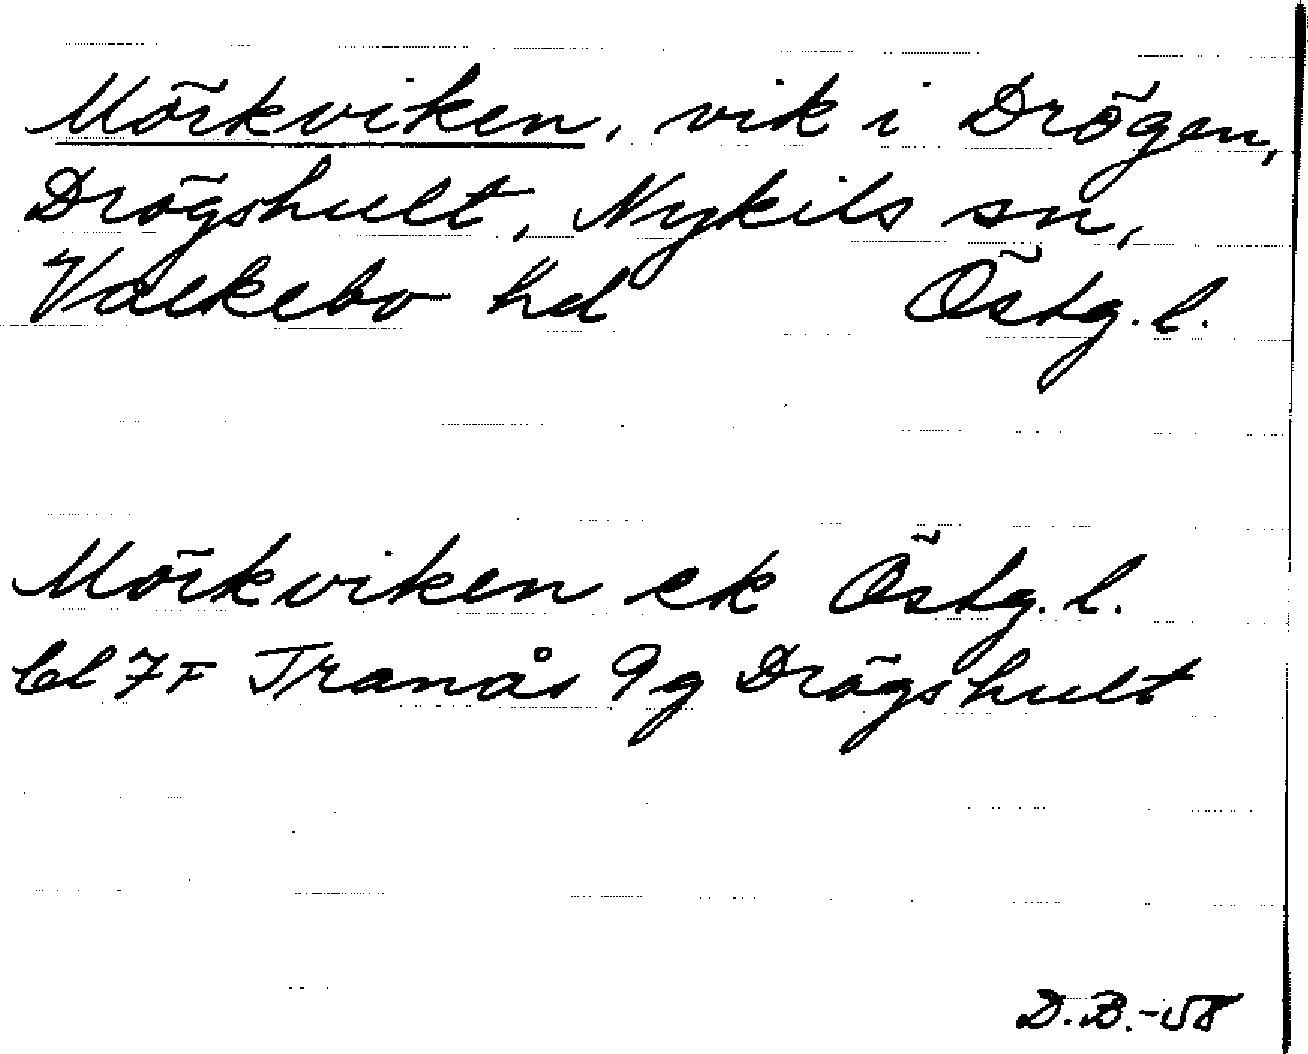 Mörkviken, vik i Drögen,
Drögshult, Nykils sn,
Valkebo hd Östg. l.
Mörkviken ek Östg. l.
bl 7F Tranås 9g Drögshult
D.B.-58